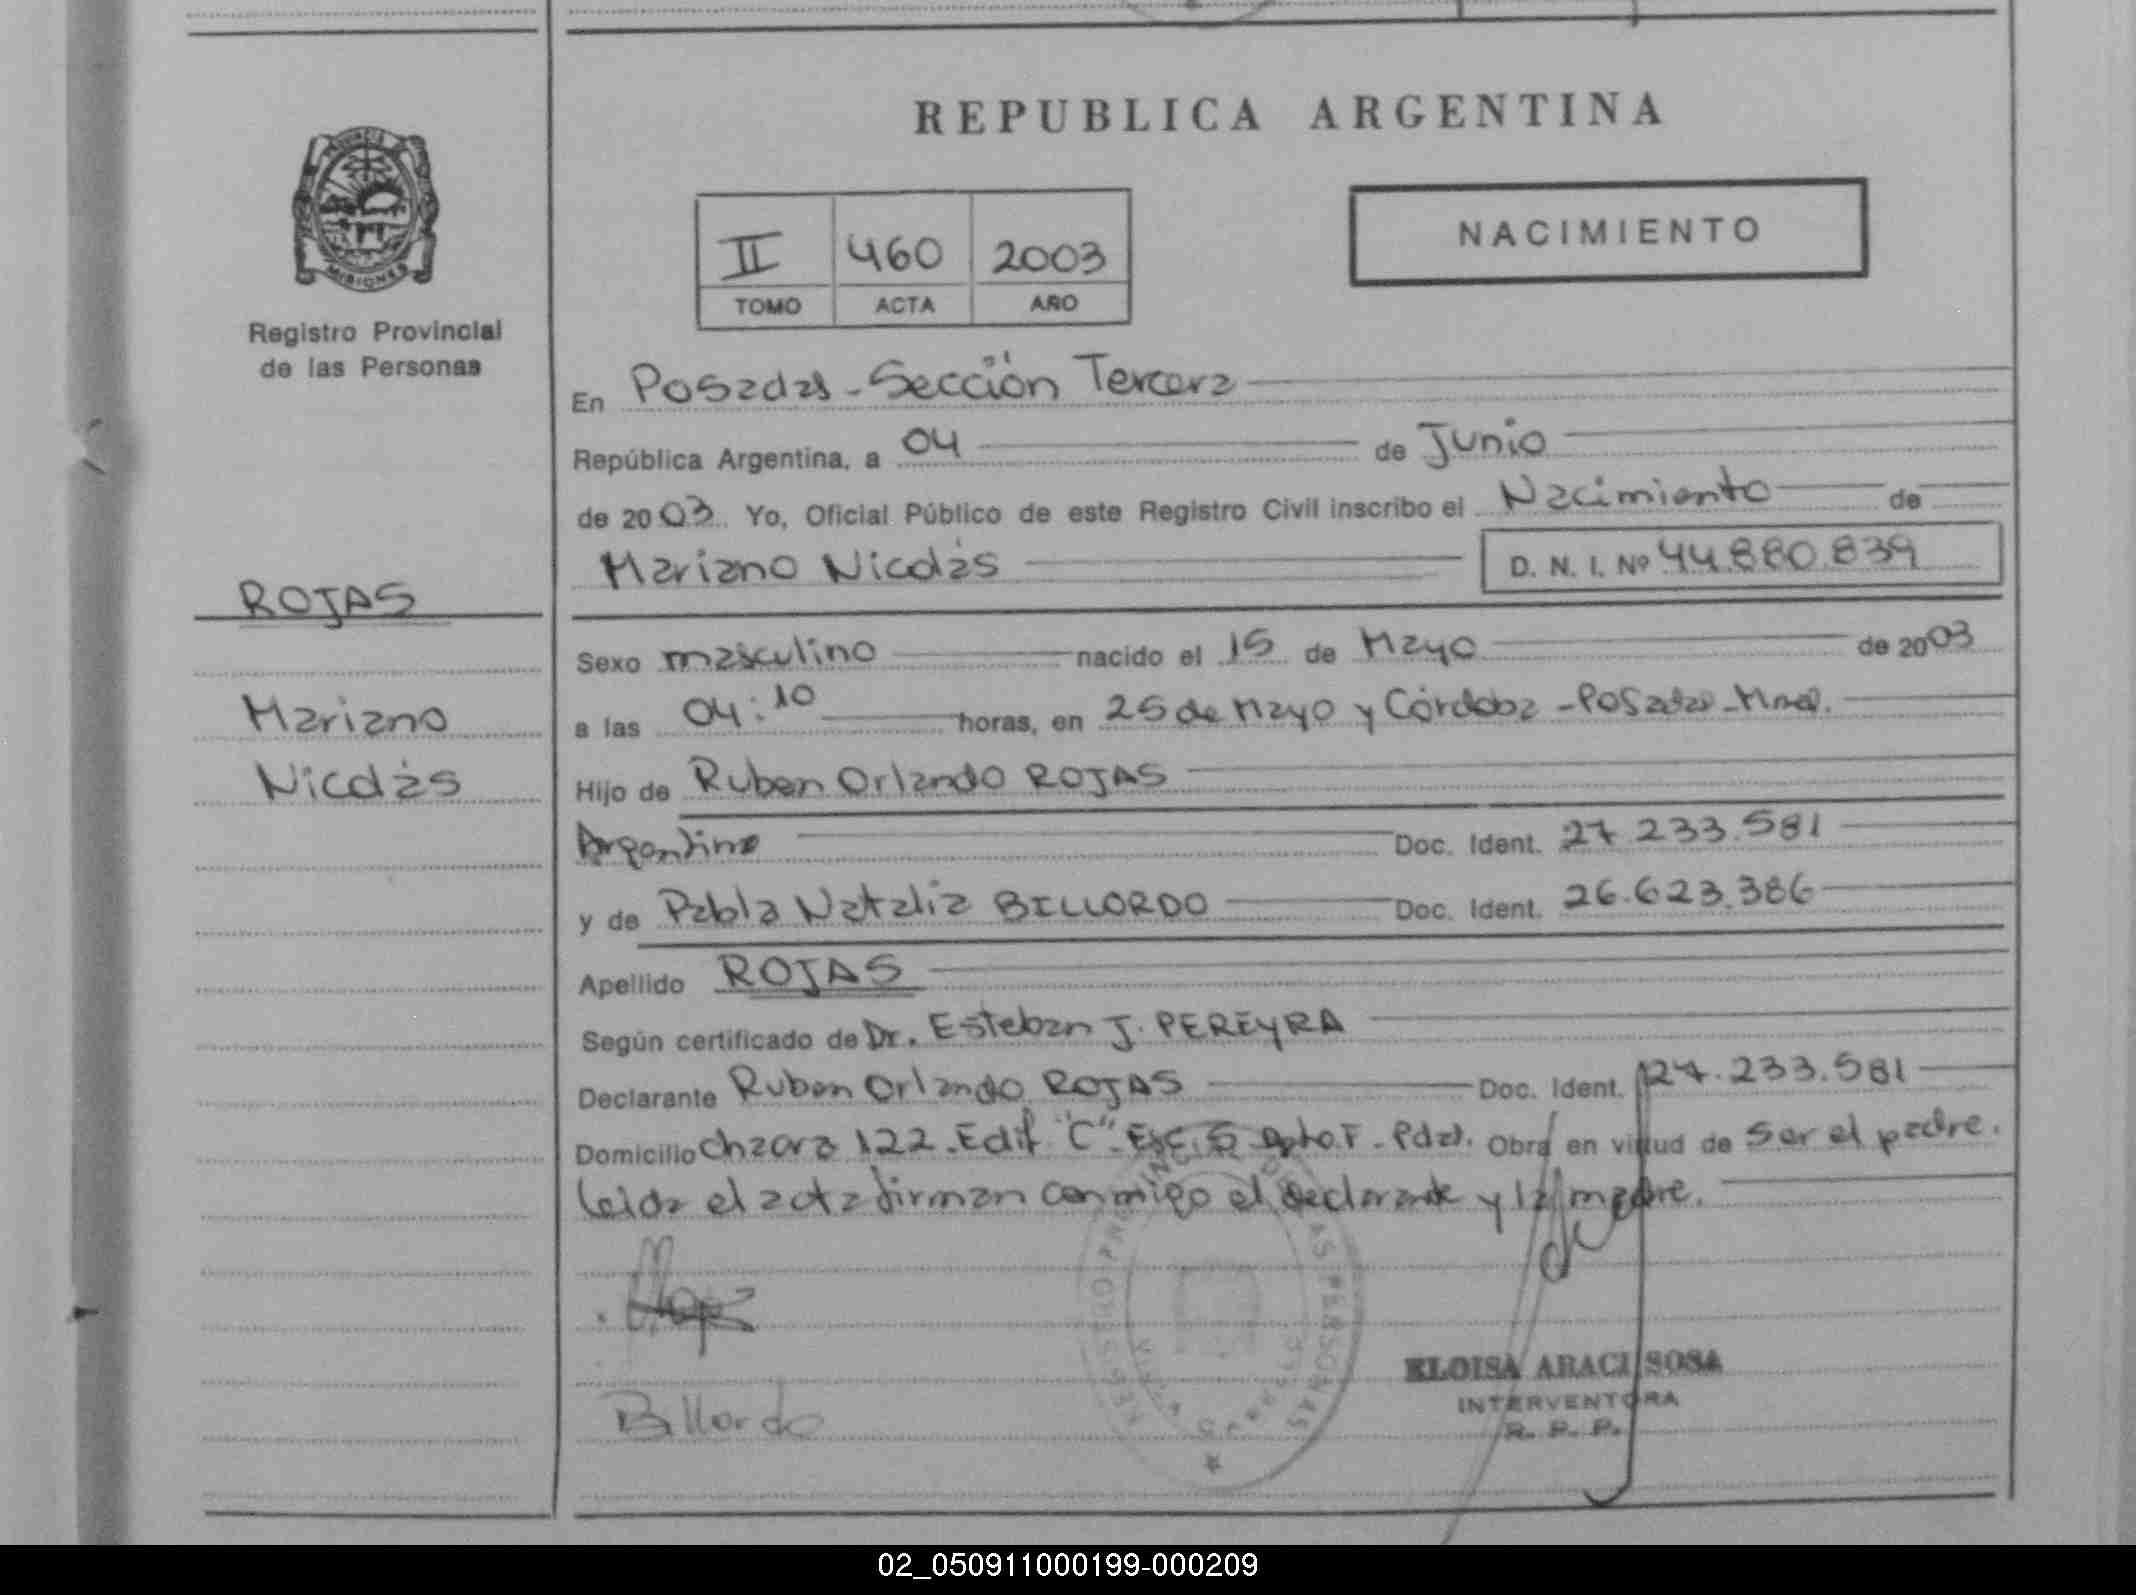 REPUBLICA ARGENTINA
PROVINCIA
MISIONES
Registro Provincial
de las Personas
II 460 2003
TOMO ACTA AÑO
NACIMIENTO
En Posadas - Sección Tercera
República Argentina, a 04 de Junio
de 2003. Yo, Oficial Público de este Registro Civil inscribo el Nacimiento de
Mariano Nicolás D. N. I. Nº 44.880.839
ROJAS
Mariano
Nicolás
Sexo masculino nacido el 15 de Mayo de 2003
a las 04:10 horas, en 25 de Mayo y Córdoba - Posadas - Mnes.
Hijo de Ruben Orlando ROJAS
Argentino Doc. Ident. 27.233.581
y de Pabla Natalia BILLORDO Doc. Ident. 26.623.386
Apellido ROJAS
Según certificado de Dr. Esteban J. PEREYRA
Declarante Ruben Orlando ROJAS Doc. Ident. 27.233.581
Domicilio Chacra 122 - Edif "C" - Esc. 5 Dpto F - Pdas. Obra en virtud de ser el padre.
Leida el acta firman conmigo el declarante y la madre.
Billordo
ELOISA ARACI SOSA
INTERVENTORA
R. P. P.
02_050911000199-000209